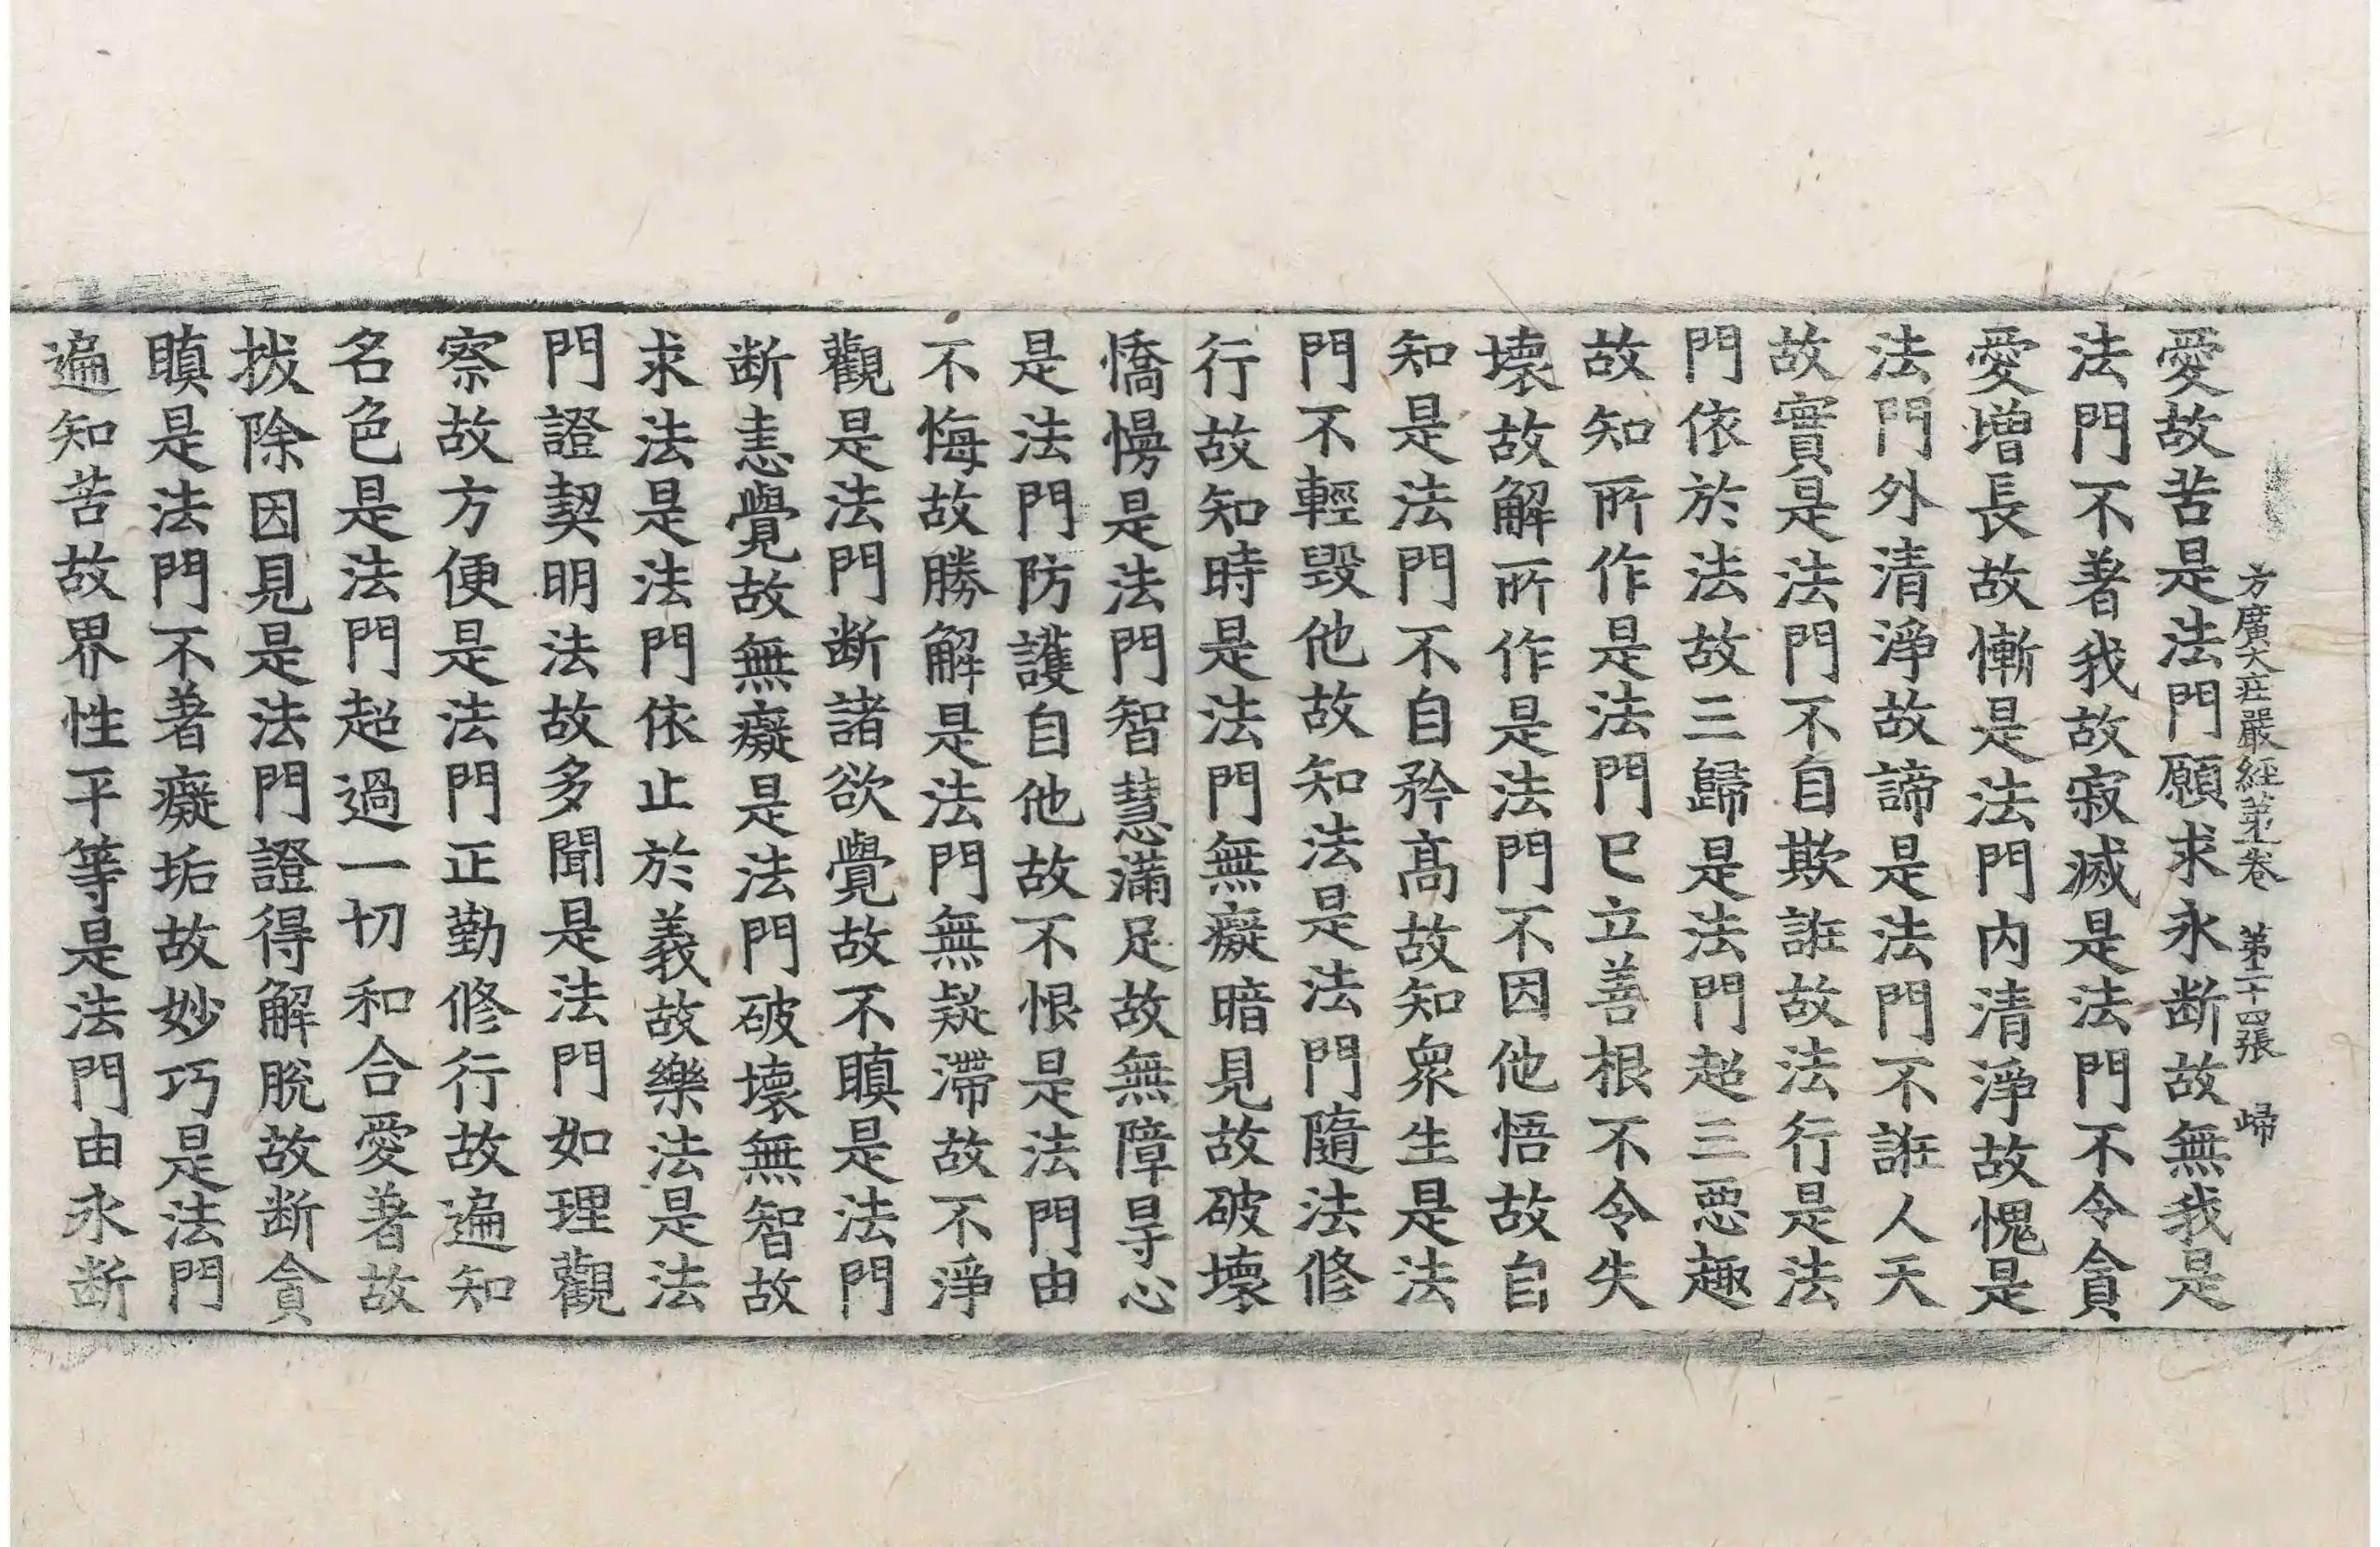 方廣大莊嚴經第一卷 第二十四張 歸
愛故苦是法門願求永断故無我是
法門不著我故寂滅是法門不令貪
愛增長故慚是法門内清淨故愧是
法門外清淨故諦是法門不誑人天
故實是法門不自欺誑故法行是法
門依於法故三歸是法門超三惡趣
故知所作是法門已立善根不令失
壞故解所作是法門不因他悟故自
知是法門不自矜髙故知衆生是法
門不輕毀他故知法是法門隨法修
行故知時是法門無癡暗見故破壞
憍慢是法門智慧滿足故無障㝵心
是法門防護自他故不恨是法門由
不悔故勝解是法門無疑滯故不淨
觀是法門断諸欲覺故不瞋是法門
断恚覺故無癡是法門破壞無智故
求法是法門依止於義故樂法是法
門證契明法故多聞是法門如理觀
察故方便是法門正勤修行故遍知
名色是法門超過一切和合愛著故
拔除因見是法門證得解脫故断貪
瞋是法門不著癡垢故妙巧是法門
遍知苦故界性平等是法門由永断